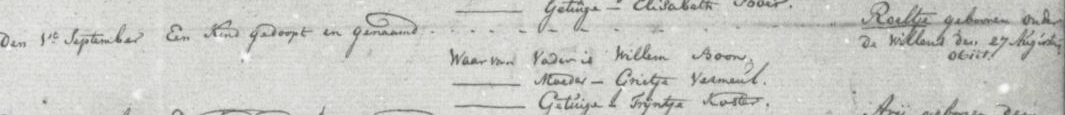 Getuige - Elisabeth
Den 1ste September Een Kind gedoopt en genaamd . . . . . . . . Roeltje gebooren onder
de Willens den 27 Augustus
Waar van Vader is Willem Boon,
Moeder - Grietje Vermeul.
Getuige - Trijntje Koster.
Arij gebooren den